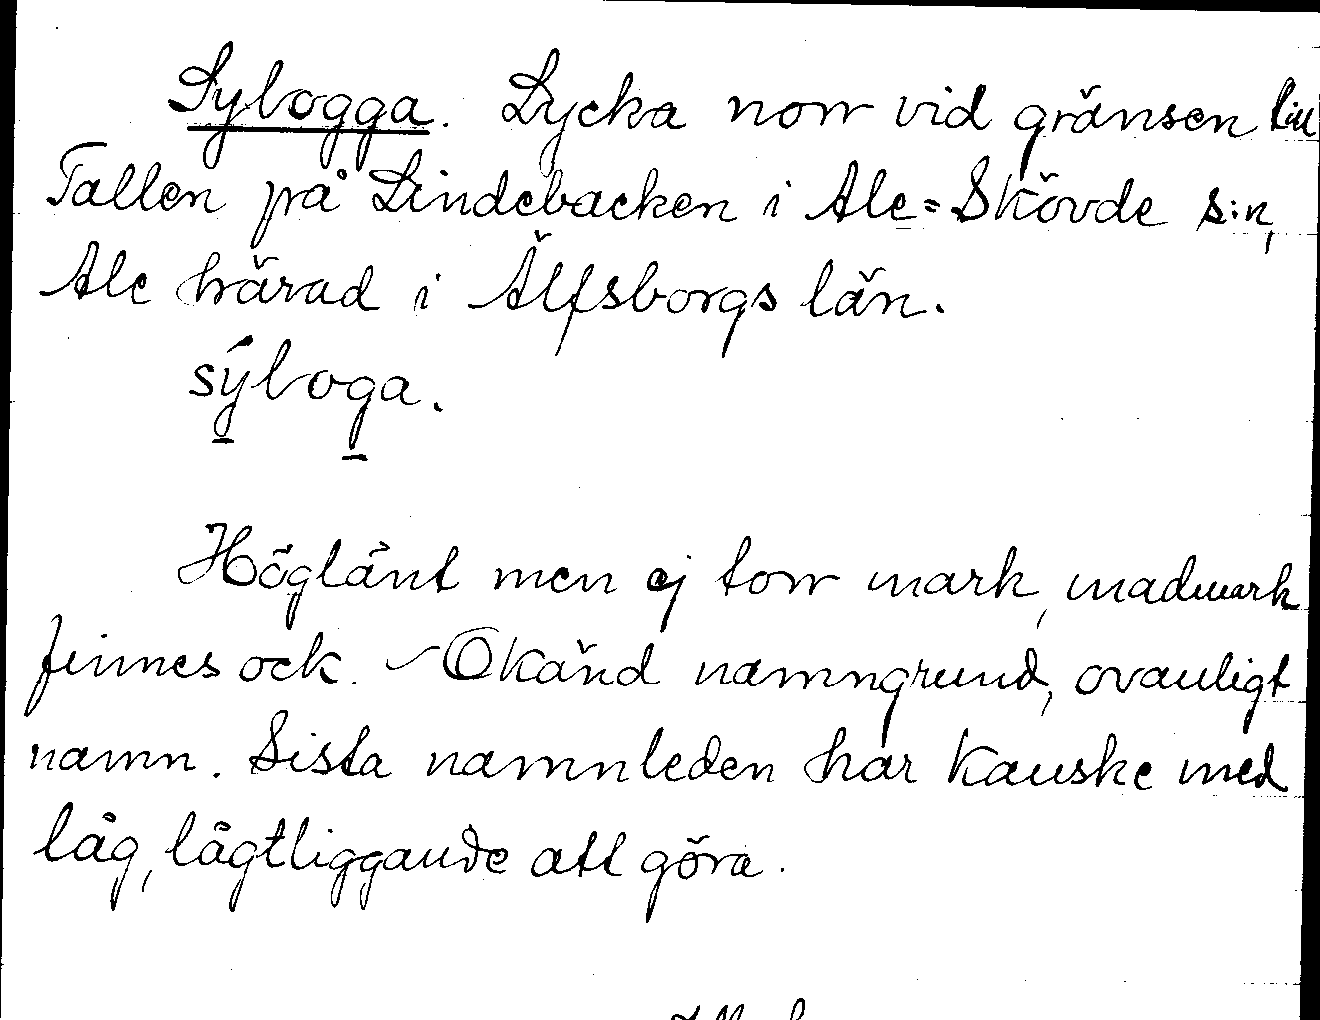 Sylogga. Lycka norr vid gränsen till
Tallen på Lindebacken i Ale=Skövde s:n,
Ale härad i Älfsborgs län.
sýloga.
Höglänt men ej torr mark, madmark
finnes ock. – Okänd namngrund, ovanligt
namn. Sista namnleden har kanske med
låg, lågtliggande att göra.